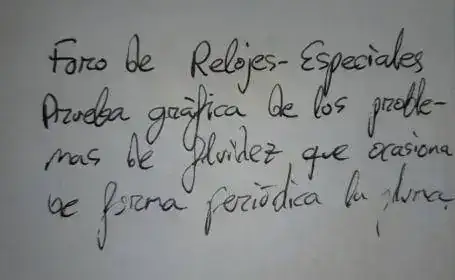 Foro de Relojes-Especiales
Prueba gráfica de los proble-
mas de fluidez que ocasiona
de forma periódica la pluma.